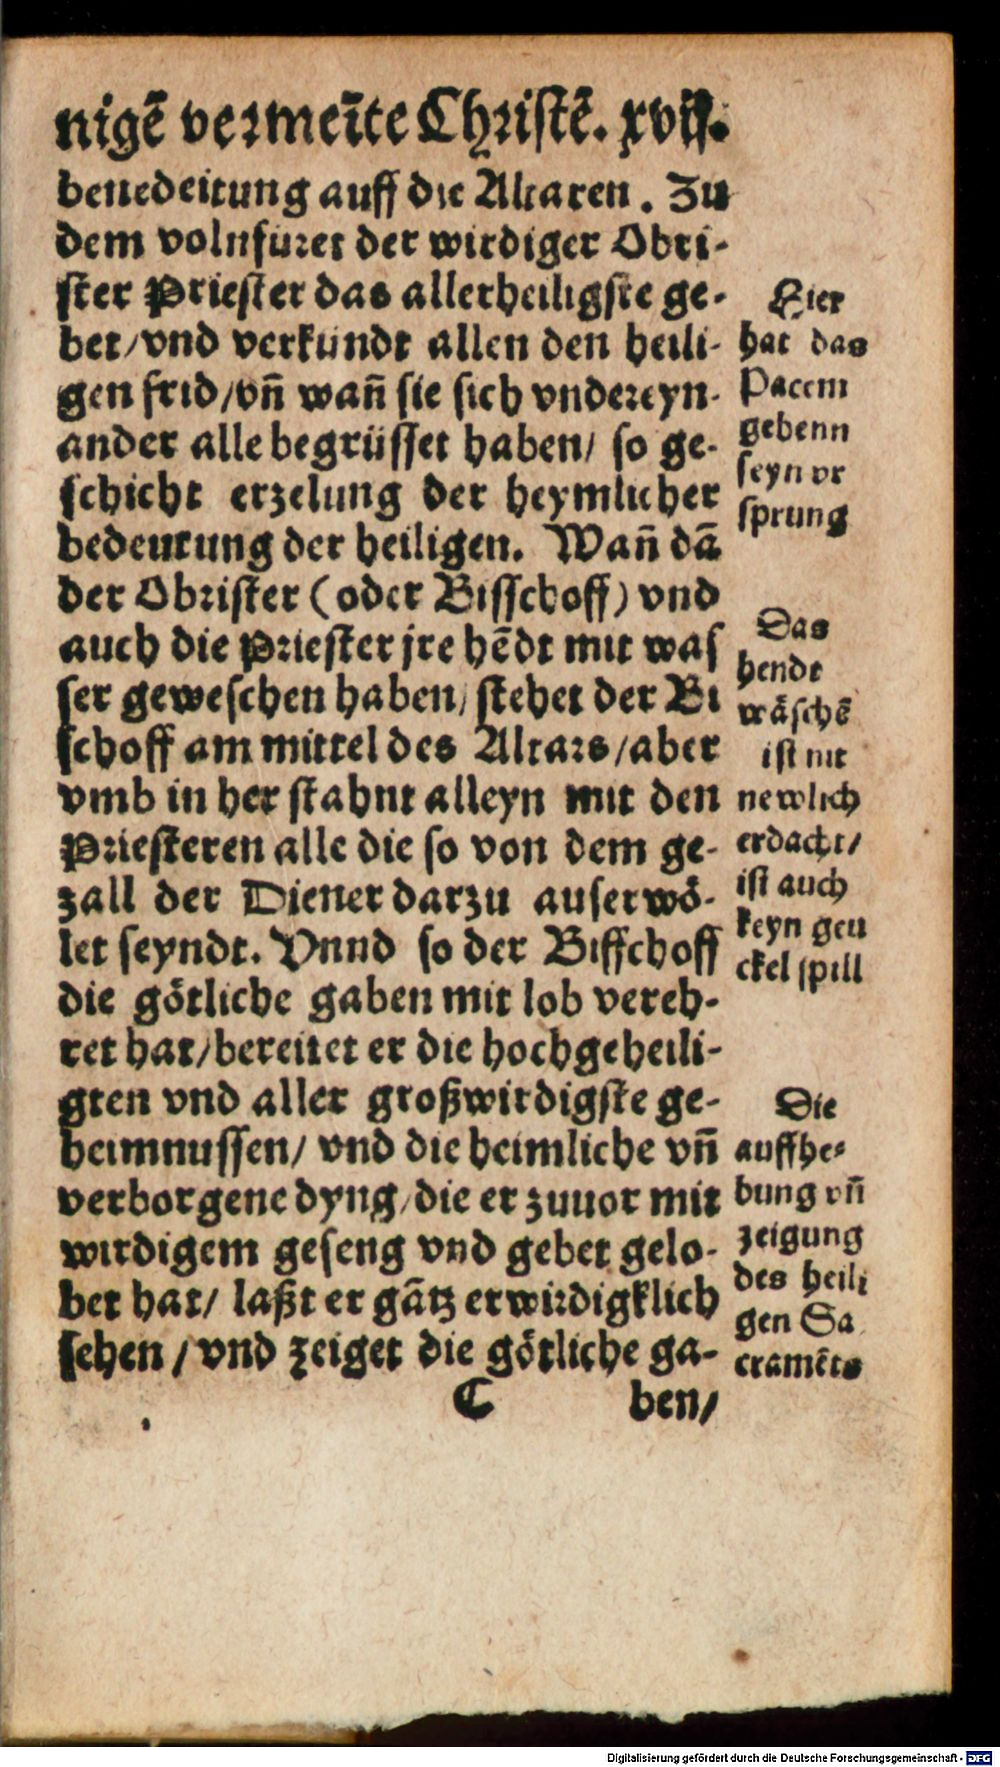 nigē vermeīte Christē. xvij.
benedeitung auff die Altaren. Zu
dem volnfüret der wirdiger Obri-
ster Priester das allerheiligste ge-
bet/vnd verkündt allen den heili-
gen frid/vn̄ wan̄ sie sich vndereyn-
ander alle begrüsset haben/ so ge-
schicht erzelung der heymlicher
bedeutung der heiligen. Wan̄ dā
der Obrister (oder Bisschoff) vnd
auch die Priester jre hēdt mit was
ser geweschen haben/ stehet der Bi
schoff am mittel des Altars/aber
vmb in her stahnt alleyn mit den
Priesteren alle die so von dem ge-
zall der Diener darzu auserwö-
let seyndt. Vnnd so der Bisschoff
die götliche gaben mit lob vereh-
ret hat/bereitet er die hochgeheili-
gten vnd aller großwirdigste ge-
heimnussen/ vnd die heimliche vn̄
verborgene dyng/die er zuuor mit
wirdigem geseng vnd gebet gelo-
bet hat/ laßt er gātz erwirdigklich
sehen/vnd zeiget die götliche ga-
C ben/
Hier
hat das
Pacem
gebenn
seyn vr
sprung
Das
hendt
wäschē
ist nit
newlich
erdacht/
ist auch
keyn geu
ckel spill
Die
auffhe-
bung vn̄
zeigung
des heili
gen Sa
cramēts
Digitalisierung gefördert durch die Deutsche Forschungsgemeinschaft - DFG